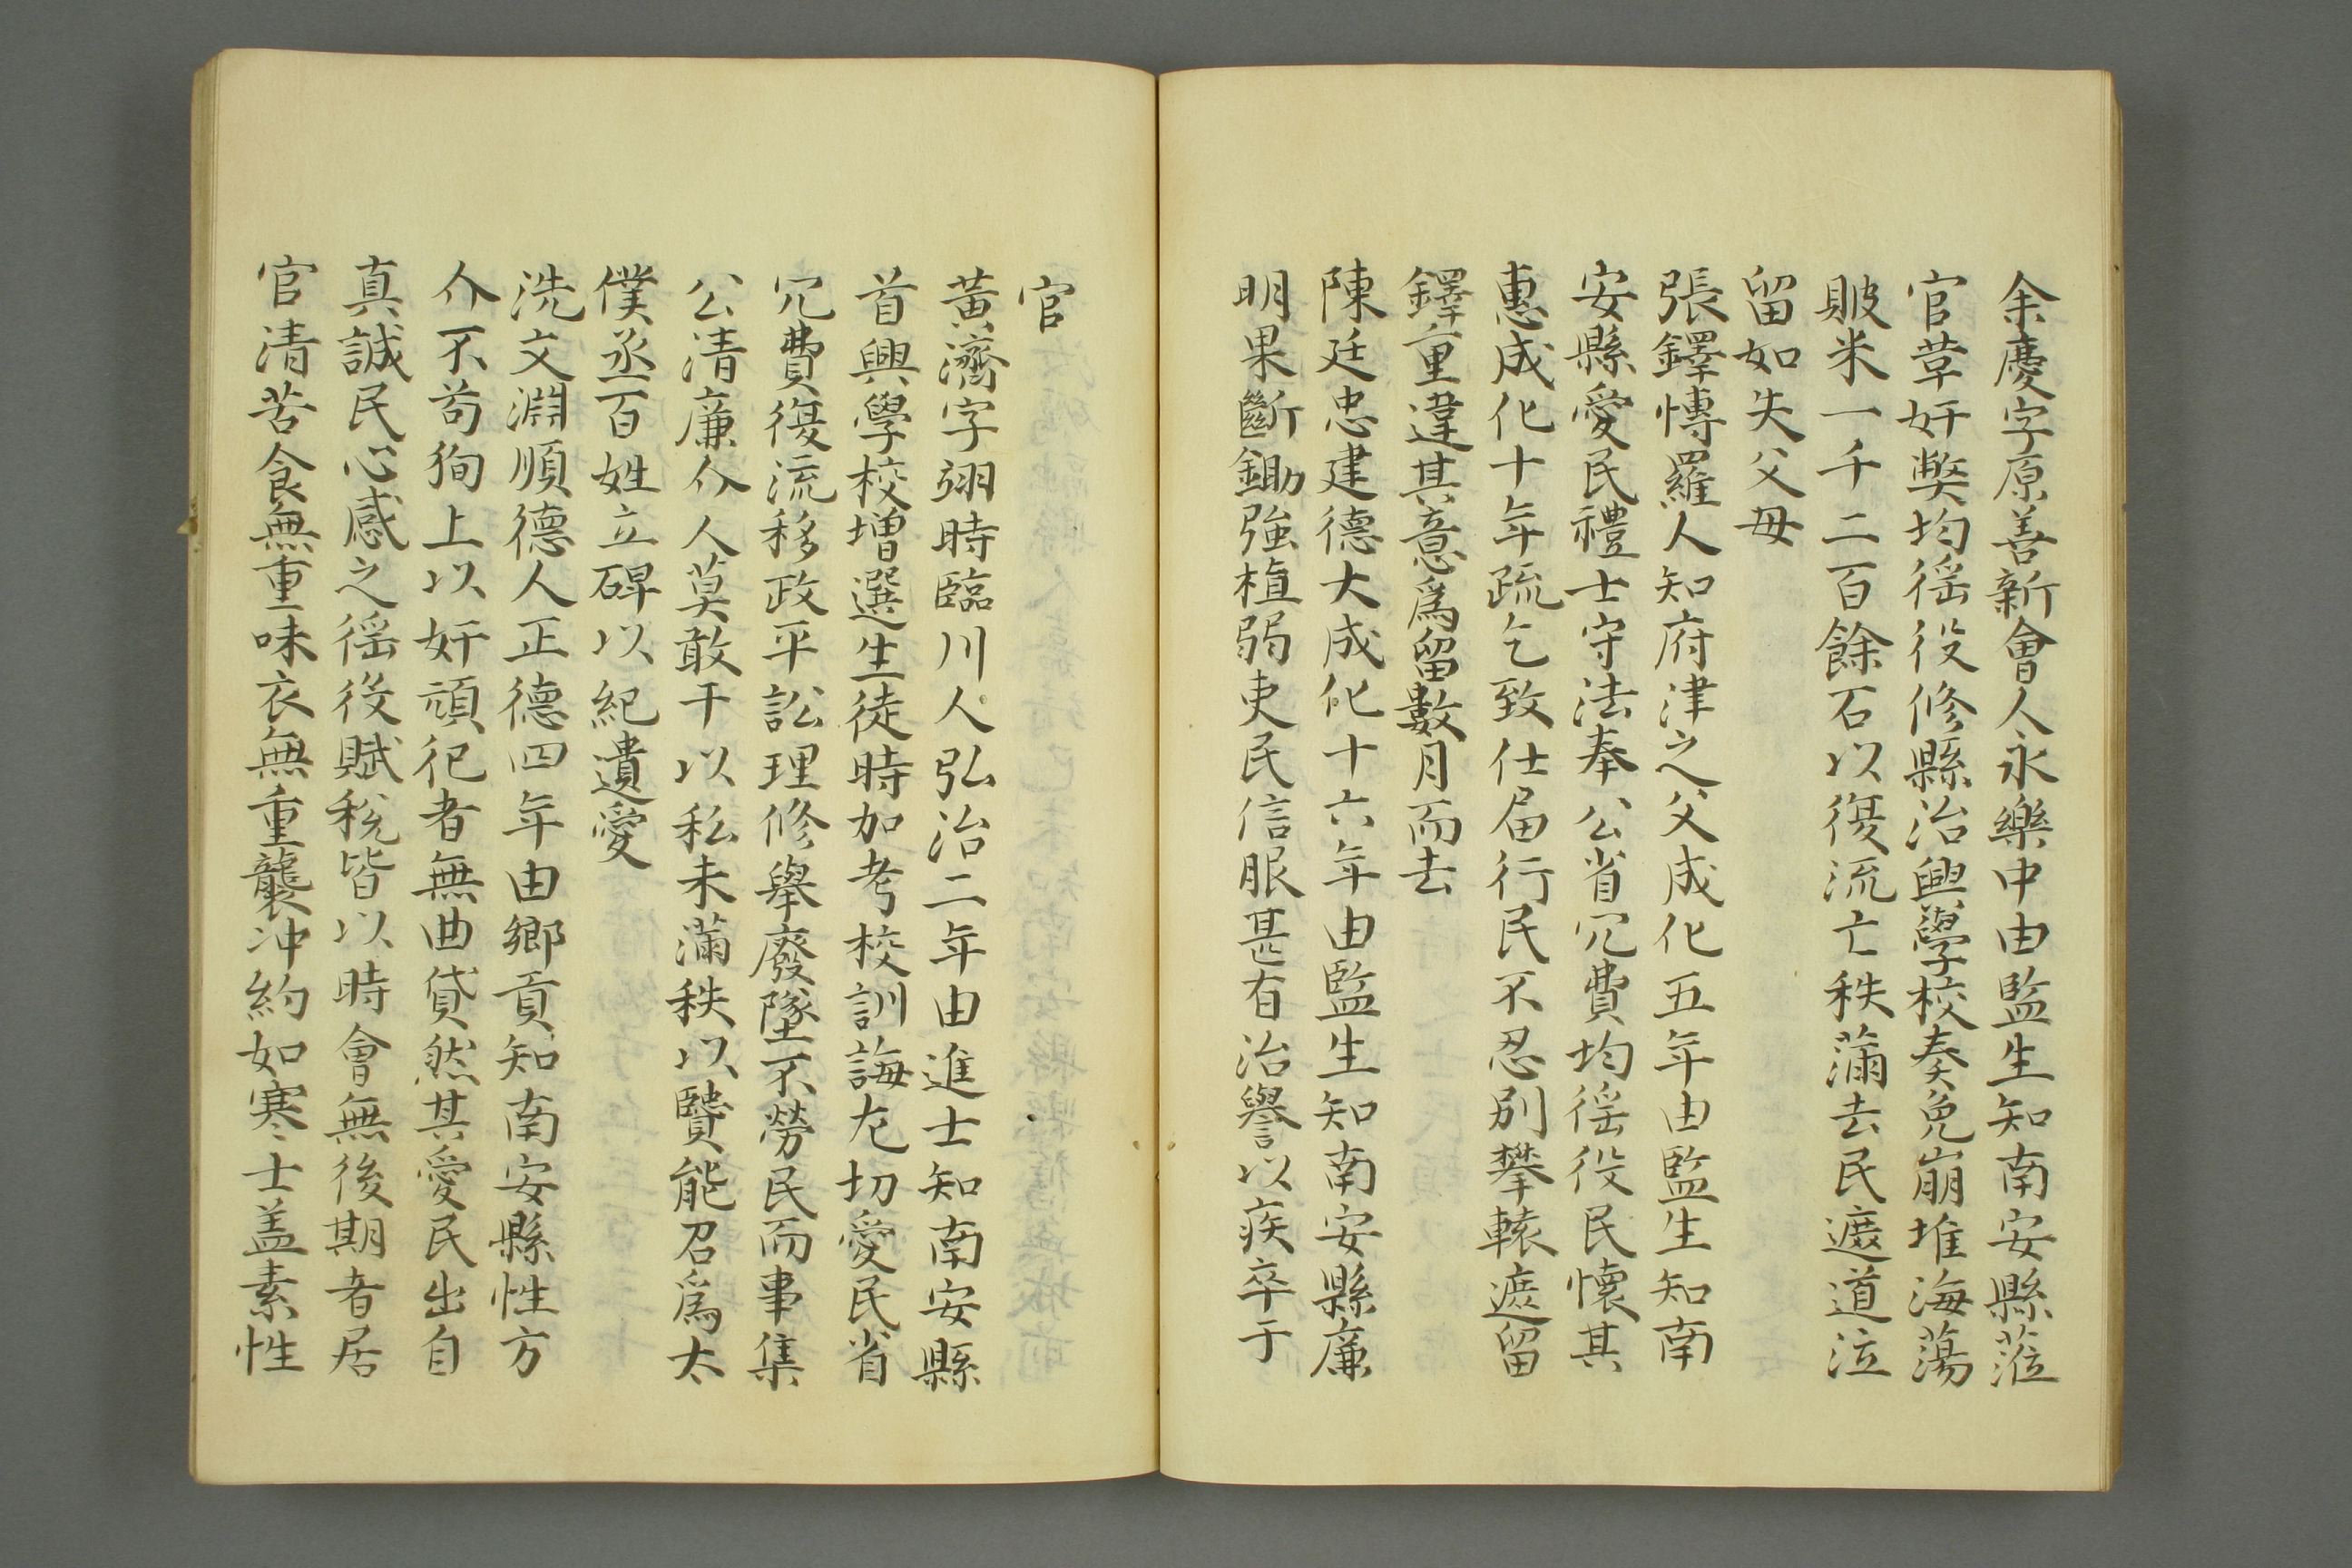 余慶字原善新會人永樂中由監生知南安縣蒞
官草奸獘均徭役修縣治興學校奏免崩堆海蕩
賍米一千二百餘石以復流亡秩滿去民遮道泣
留如失父母
張鐸愽羅人知府津之父成化五年由監生知南
安縣愛民禮士守法奉公省冗費均徭役民懷其
惠成化十年疏乞致仕届行民不忍別攀轅遮留
鐸重違其意爲留數月而去
陳廷忠建德大成化十六年由監生知南安縣廉
明果斷鋤強植弱吏民信服甚有治譽以疾卒于
官
黃濟字翊時臨川人弘治二年由進士知南安縣
首興學校增選生徒時加考校訓誨尤切愛民省
冗費復流移政平訟理修舉廢墜不勞民而事集
公清廉介人莫敢干以私未滿秩以賢能召爲太
僕丞百姓立碑以紀遺愛
洗文淵順德人正德四年由鄉貢知南安縣性方
介不苟狥上以奸頑犯者無曲貸然其愛民出自
真誠民心感之徭役賦稅皆以時會無後期者居
官清苦食無重味衣無重襲冲約如寒士盖素性